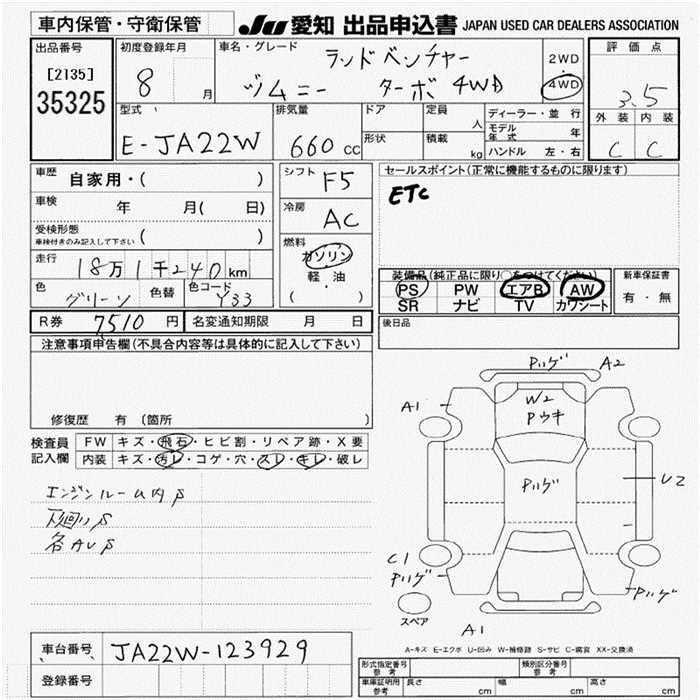 車内保管・守衛保管
JU 愛知 出品申込書 JAPAN USED CAR DEALERS ASSOCIATION
出品番号 [2135] 35325
初度登録年月 8 月
車名・グレード ランドベンチャー
ヅムニー ターボ 4WD
2WD
4WD
評価点 3.5
外装 内装
C C
型式 E-JA22W
排気量 660 cc
ドア
形状
定員 人
積載 kg
ディーラー・並行
モデル年式 年
ハンドル 左・右
車歴 自家用・( )
車検 年 月( 日)
受検形態
車検付きのみ記入して下さい ( )
走行 18万1千240km
色 グリーン 色替 色コード Y33
シフト F5
冷房 AC
燃料 ガソリン
軽・油
( )
セールスポイント(正常に機能するものに限ります)
ETC
装備品(純正品に限り○をつけてください)
PS PW エアB AW
SR ナビ TV カワシート
新車保証書
有・無
R券 7510 円 名変通知期限 月 日
後日品
注意事項申告欄(不具合内容等は具体的に記入して下さい)
修復歴 有 (箇所 )
検査員記入欄
FW キズ・飛石・ヒビ割・リペア跡・X要
内装 キズ・汚レ・コゲ・穴・スレ・キレ・破レ
エンジンルーム内S
下廻りS
各AUS
Pハゲ A2
A1
W2
Pウキ
Pハゲ
U2
C1
Pハゲ
Pハゲ
スペア
A1
A-キズ E-エクボ U-凹み W-補修跡 S-サビ C-腐食 XX-交換済
車台番号 JA22W-123929
登録番号
形式指定番号 参考
類別区分番号 参考
車庫証明用 参考 長さ cm 幅 cm 高さ cm